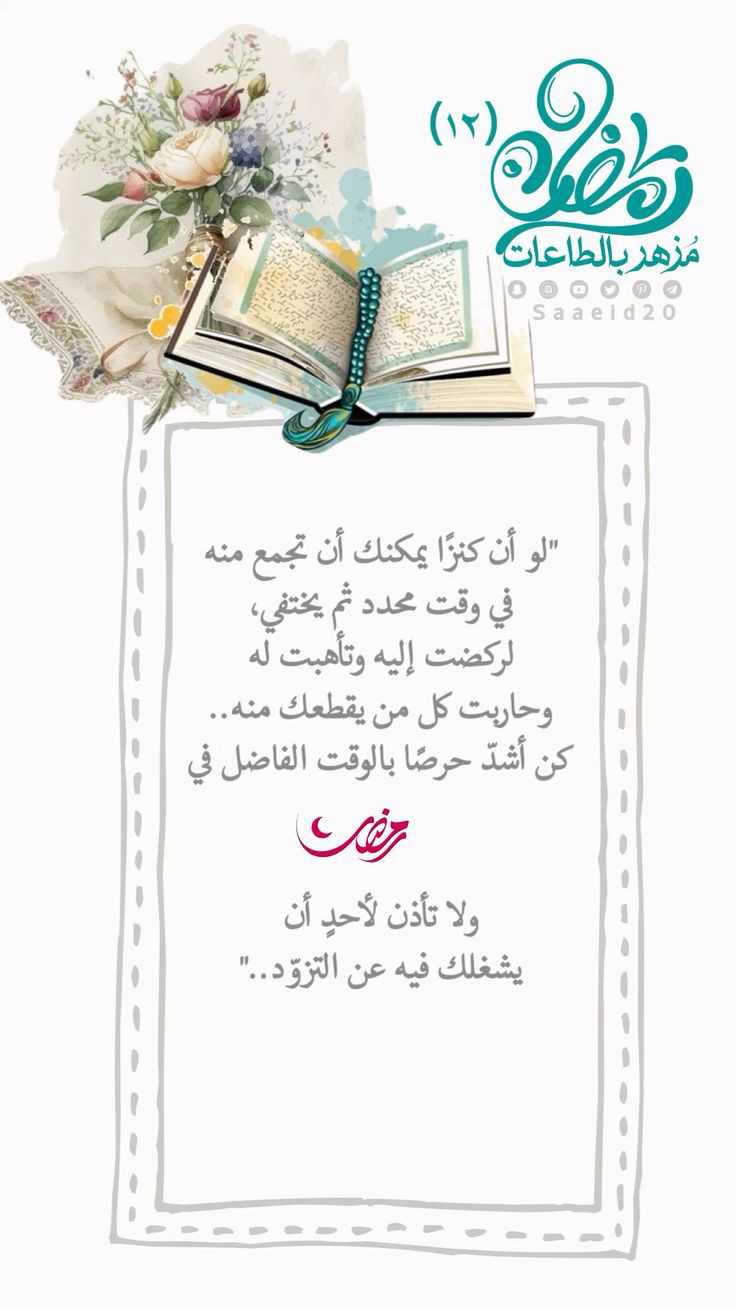 (١٢)
رمضان
مُزهر بالطاعات
Saaeid20
"لو أن كنزًا يمكنك أن تجمع منه
في وقت محدد ثم يختفي،
لركضت إليه وتأهبت له
وحاربت كل من يقطعك منه..
كن أشدّ حرصًا بالوقت الفاضل في
رمضان
ولا تأذن لأحدٍ أن
يشغلك فيه عن التزوّد.."